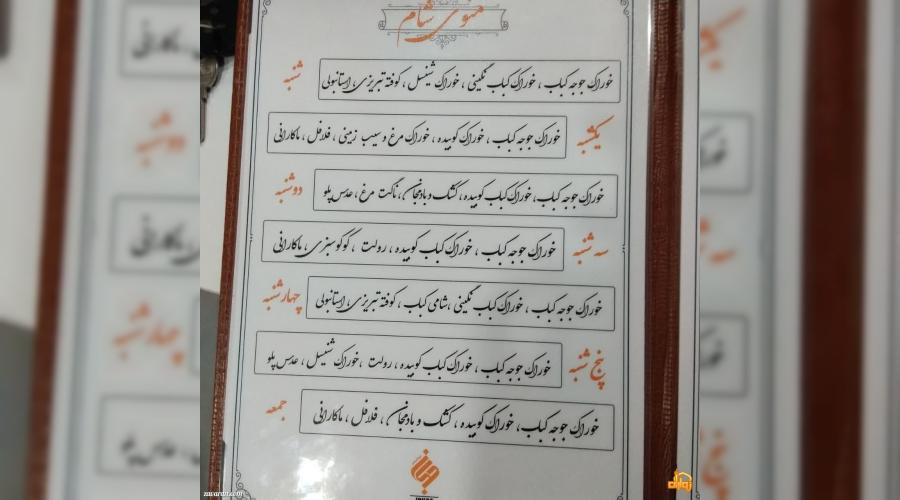 منوی شام
شنبه
خوراک جوجه کباب ، خوراک کباب نگینی ، خوراک شنیسل ، کوفته تبریزی، استانبولی
یکشنبه
خوراک جوجه کباب ، خوراک کوبیده ، خوراک مرغ و سیب زمینی ، فلافل ، ماکارانی
دوشنبه
خوراک جوجه کباب، خوراک کباب کوبیده، کشک و بادمجان، ناگت مرغ ، عدس پلو
سه شنبه
خوراک جوجه کباب ، خوراک کباب کوبیده ، رولت ، کوکو سبزی، ماکارانی
چهارشنبه
خوراک جوجه کباب ، خوراک کباب نگینی ،شامی کباب ، کوفته تبریزی، استانبولی
پنج شنبه
خوراک جوجه کباب، خوراک کباب کوبیده ، رولت ،خوراک شنیسل ، عدس پلو
جمعه
خوراک جوجه کباب، خوراک کوبیده ، کشک و بادمجان ، فلافل ، ماکارانی
zavaran.com
زوران